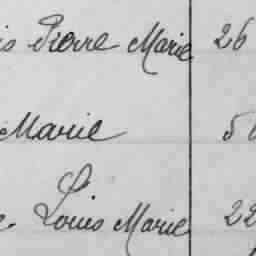 is Pierre Marie 26
Marie 5
e. Louis Marie 22